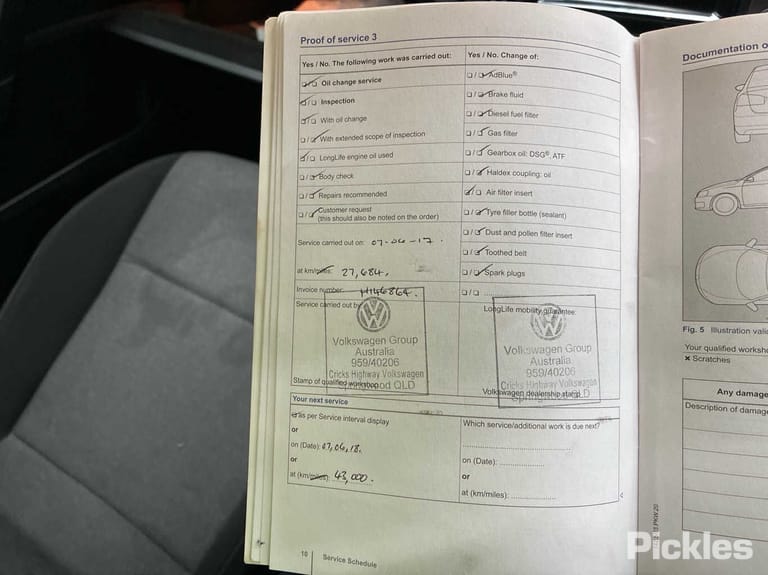 Proof of service 3
Yes / No. The following work was carried out:
☑/☐ Oil change service
☑/☐ Inspection
☑/☐ With oil change
☐/☑ With extended scope of inspection
☑/☐ LongLife engine oil used
☐/☑ Body check
☐/☑ Repairs recommended
☐/☑ Customer request
(this should also be noted on the order)
Service carried out on: 07-06-17.
at km/miles: 27,684.
Invoice number: H146864.
Service carried out by:
Volkswagen Group
Australia
959/40206
Cricks Highway Volkswagen
Springwood QLD
Stamp of qualified workshop
Yes / No. Change of:
☐/☑ AdBlue®
☐/☑ Brake fluid
☐/☑ Diesel fuel filter
☐/☑ Gas filter
☐/☑ Gearbox oil: DSG®, ATF
☐/☑ Haldex coupling: oil
☑/☐ Air filter insert
☐/☑ Tyre filler bottle (sealant)
☐/☑ Dust and pollen filter insert
☐/☑ Toothed belt
☐/☑ Spark plugs
☐/☐ ....................
LongLife mobility guarantee:
Volkswagen Group
Australia
959/40206
Cricks Highway Volkswagen
Volkswagen dealership stamp
Your next service
☑ as per Service interval display
or
on (Date): 07,06,18.
or
at (km/miles): 43,000.
Which service/additional work is due next?
on (Date): ....................
or
at (km/miles): ....................
10 Service Schedule
Documentation o
Fig. 5 Illustration vali
Your qualified worksho
× Scratches
Any damage
Description of damag
Pickles